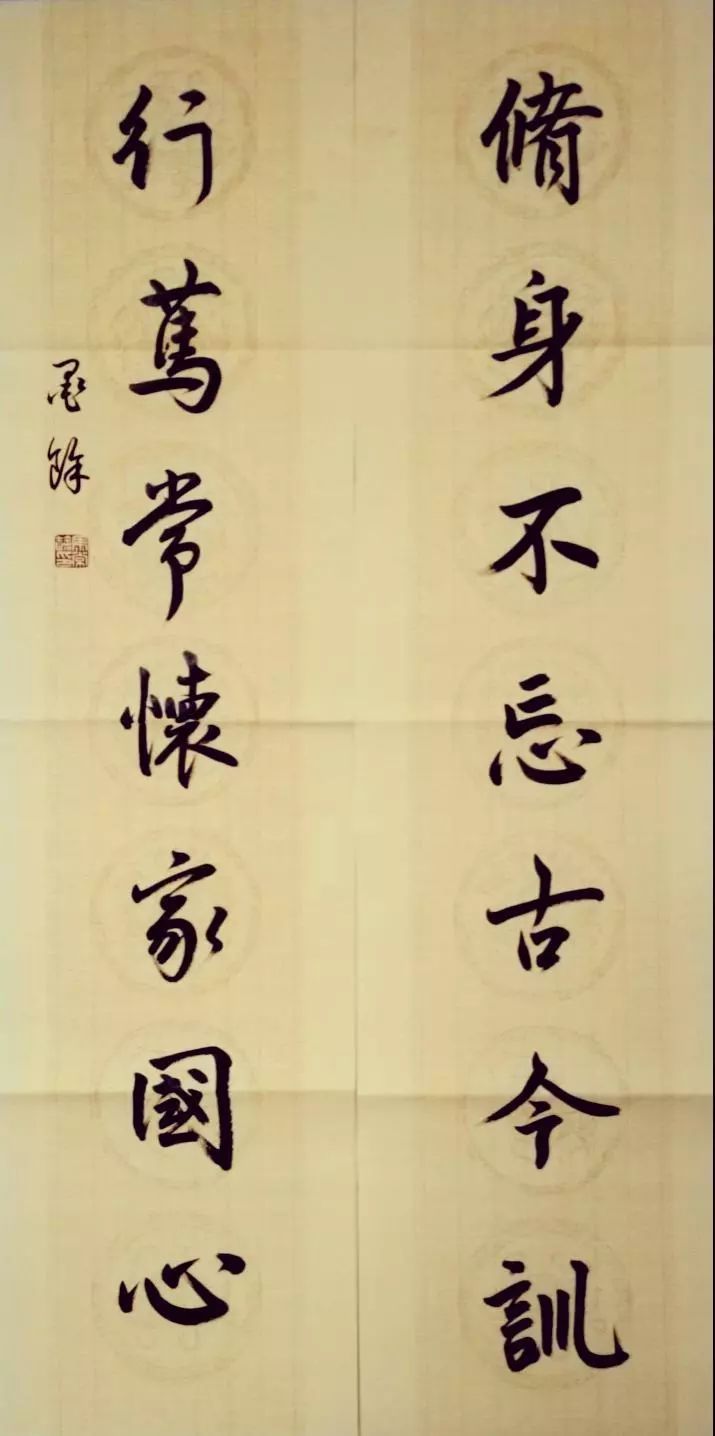 脩身不忘古今訓
行篤常懷家國心
墨餘